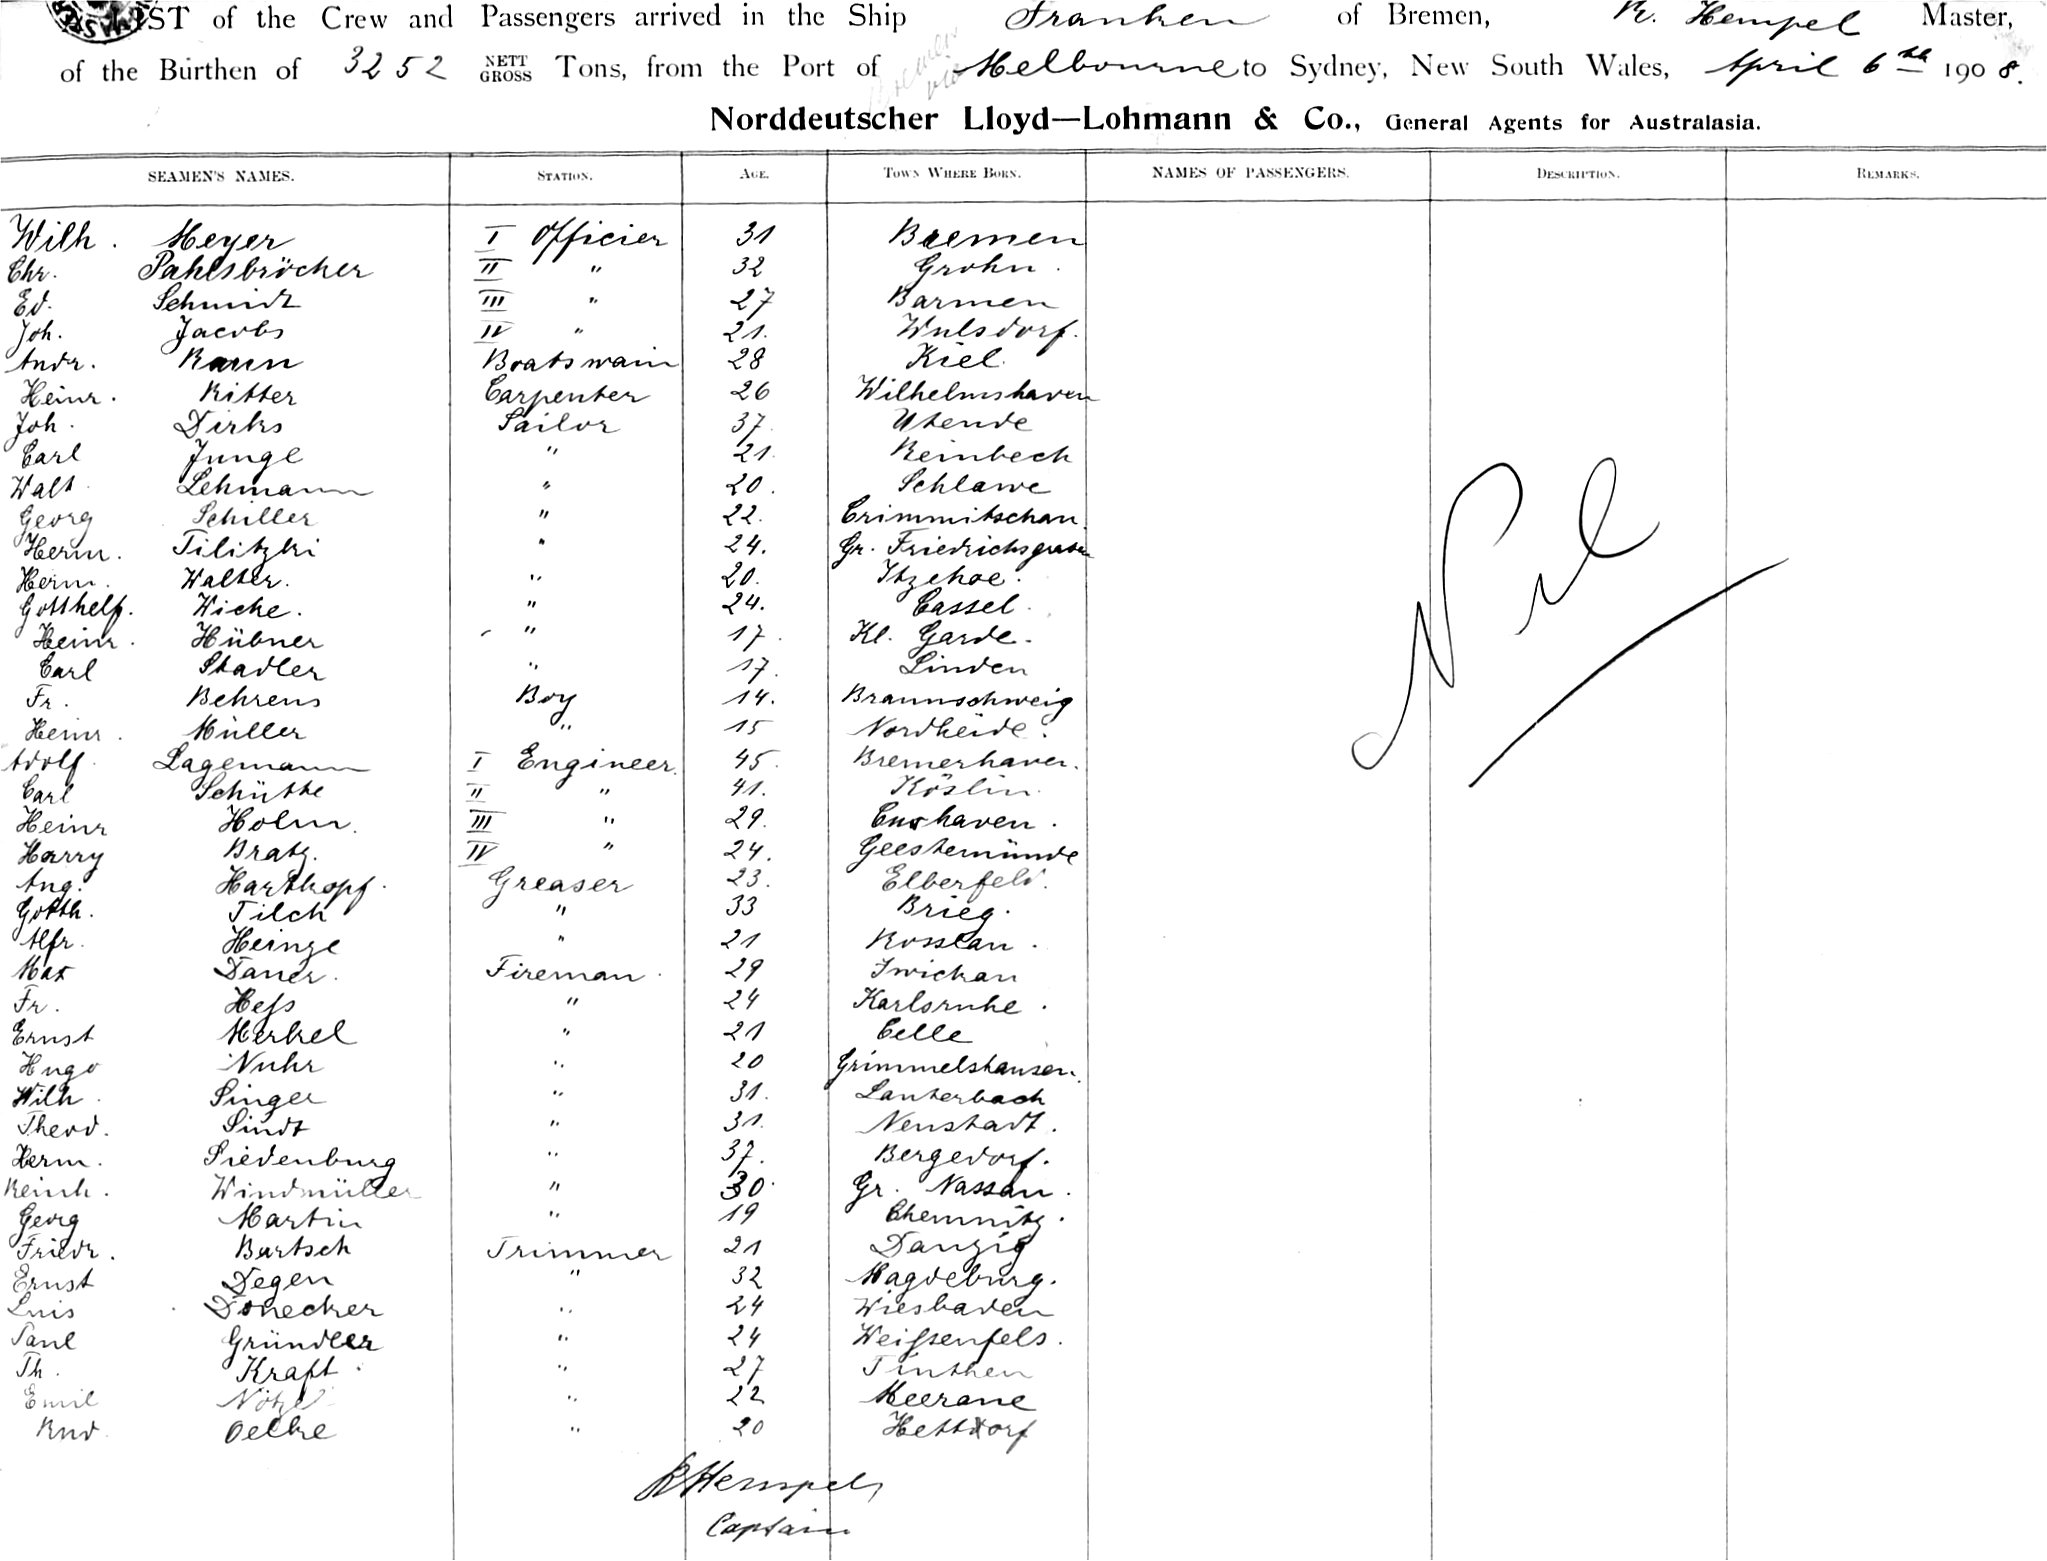 A LIST of the Crew and Passengers arrived in the Ship Franken of Bremen, R. Hempel Master,
of the Burthen of 3252 NETT GROSS Tons, from the Port of Bremen via Melbourne to Sydney, New South Wales, April 6th 1908.
Norddeutscher Lloyd—Lohmann & Co., General Agents for Australasia.
SEAMEN'S NAMES. STATION. AGE. TOWN WHERE BORN. NAMES OF PASSENGERS. DESCRIPTION. REMARKS.
Wilh. Meyer I Officier 31 Bremen
Chr. Pahlsbröcker II " 32 Grohn.
Ed. Schmidt III " 27 Barmen
Joh. Jacobs IV " 21. Wulsdorf.
Andr. Raun Boatswain 28 Kiel.
Heinr. Ritter Carpenter 26 Wilhelmshaven
Joh. Dirks Sailor 37. Utende
Carl Junge " 21. Reinbeck
Walt. Lehmann " 20. Schlawe
Georg Schiller " 22. Crimmitschau.
Herm. Tilitzki " 24. Gr. Friedrichsgraben
Herm. Walter. " 20. Itzehoe.
Gotthelf. Wicke. " 24. Cassel.
Heinr. Hübner " 17. Kl. Garde.
Carl Stadler " 17. Linden
Fr. Behrens Boy 14. Braunschweig
Heinr. Müller " 15 Nordheide.
Adolf. Lagemann I Engineer. 45. Bremerhaven.
Carl Schütte II " 41. Köslin.
Heinr Holm. III " 29. Cuxhaven.
Harry Bratz. IV " 24. Geestemünde
Aug. Harthopf. Greaser 23. Elberfeld.
Gotth. Tilch " 33 Brieg.
Alfr. Heinze " 21 Rosslau.
Max Daner. Fireman. 29 Zwickau
Fr. Heſs " 24 Karlsruhe.
Ernst Merkel " 21 Celle
Hugo Nuhr " 20 Grimmelshausen.
Wilh. Singer " 31. Lauterbach
Theod. Sindt " 31. Neustadt.
Herm. Siedenburg " 37. Bergedorf.
Reinh. Windmüller " 30. Gr. Nassau.
Georg Martin " 19 Chemnitz.
Friedr. Bartsch Trimmer 21 Danzig
Ernst Degen " 32 Magdeburg.
Luis Donecker " 24 Wiesbaden
Paul Gründler " 24 Weiſsenfels.
Th. Kraft. " 27
Emil Nötzel " 22 Meerane
Rud. Oelke " 20 Hettdorf
Nil
R Hempel,
Captain